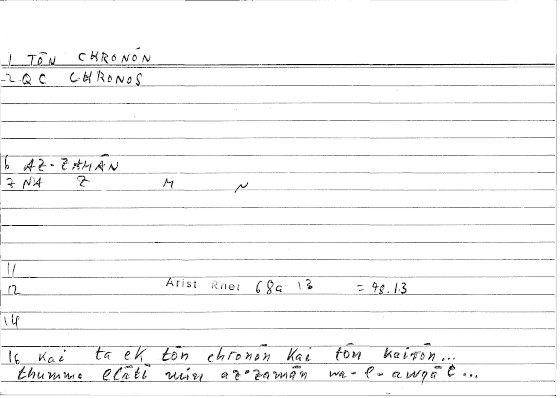 1 TŌN CHRONŌN
2 QC CHRONOS
6 AZ-ZAMĀN
7 NA Z M N
11
12 Arist Rhet 68a 13 = 48.13
14
16 kai ta ek tōn chronōn kai tōn kairōn...
thumma llātī min az-zamān wa-l-awqāt...